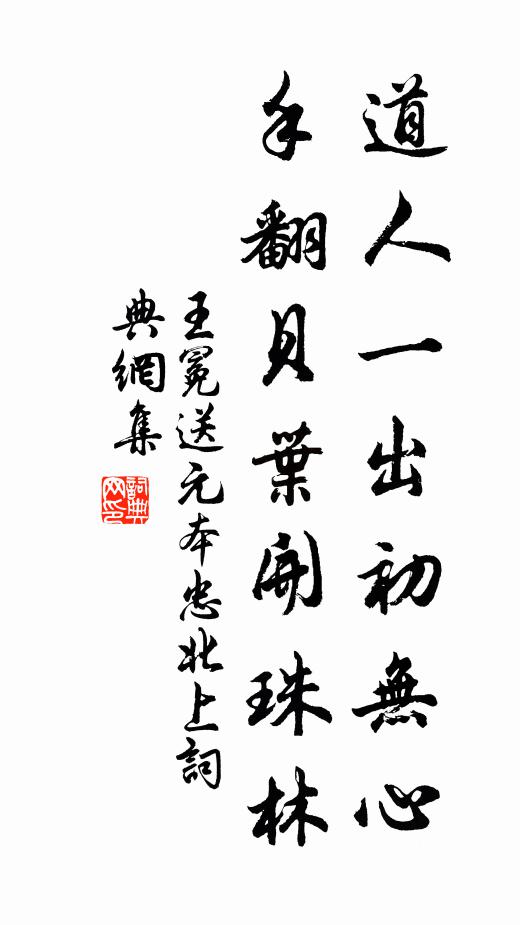 道人一出初無心
手翻貝葉開珠林
王冕送元本忠北上詞
典網集
詞典網印